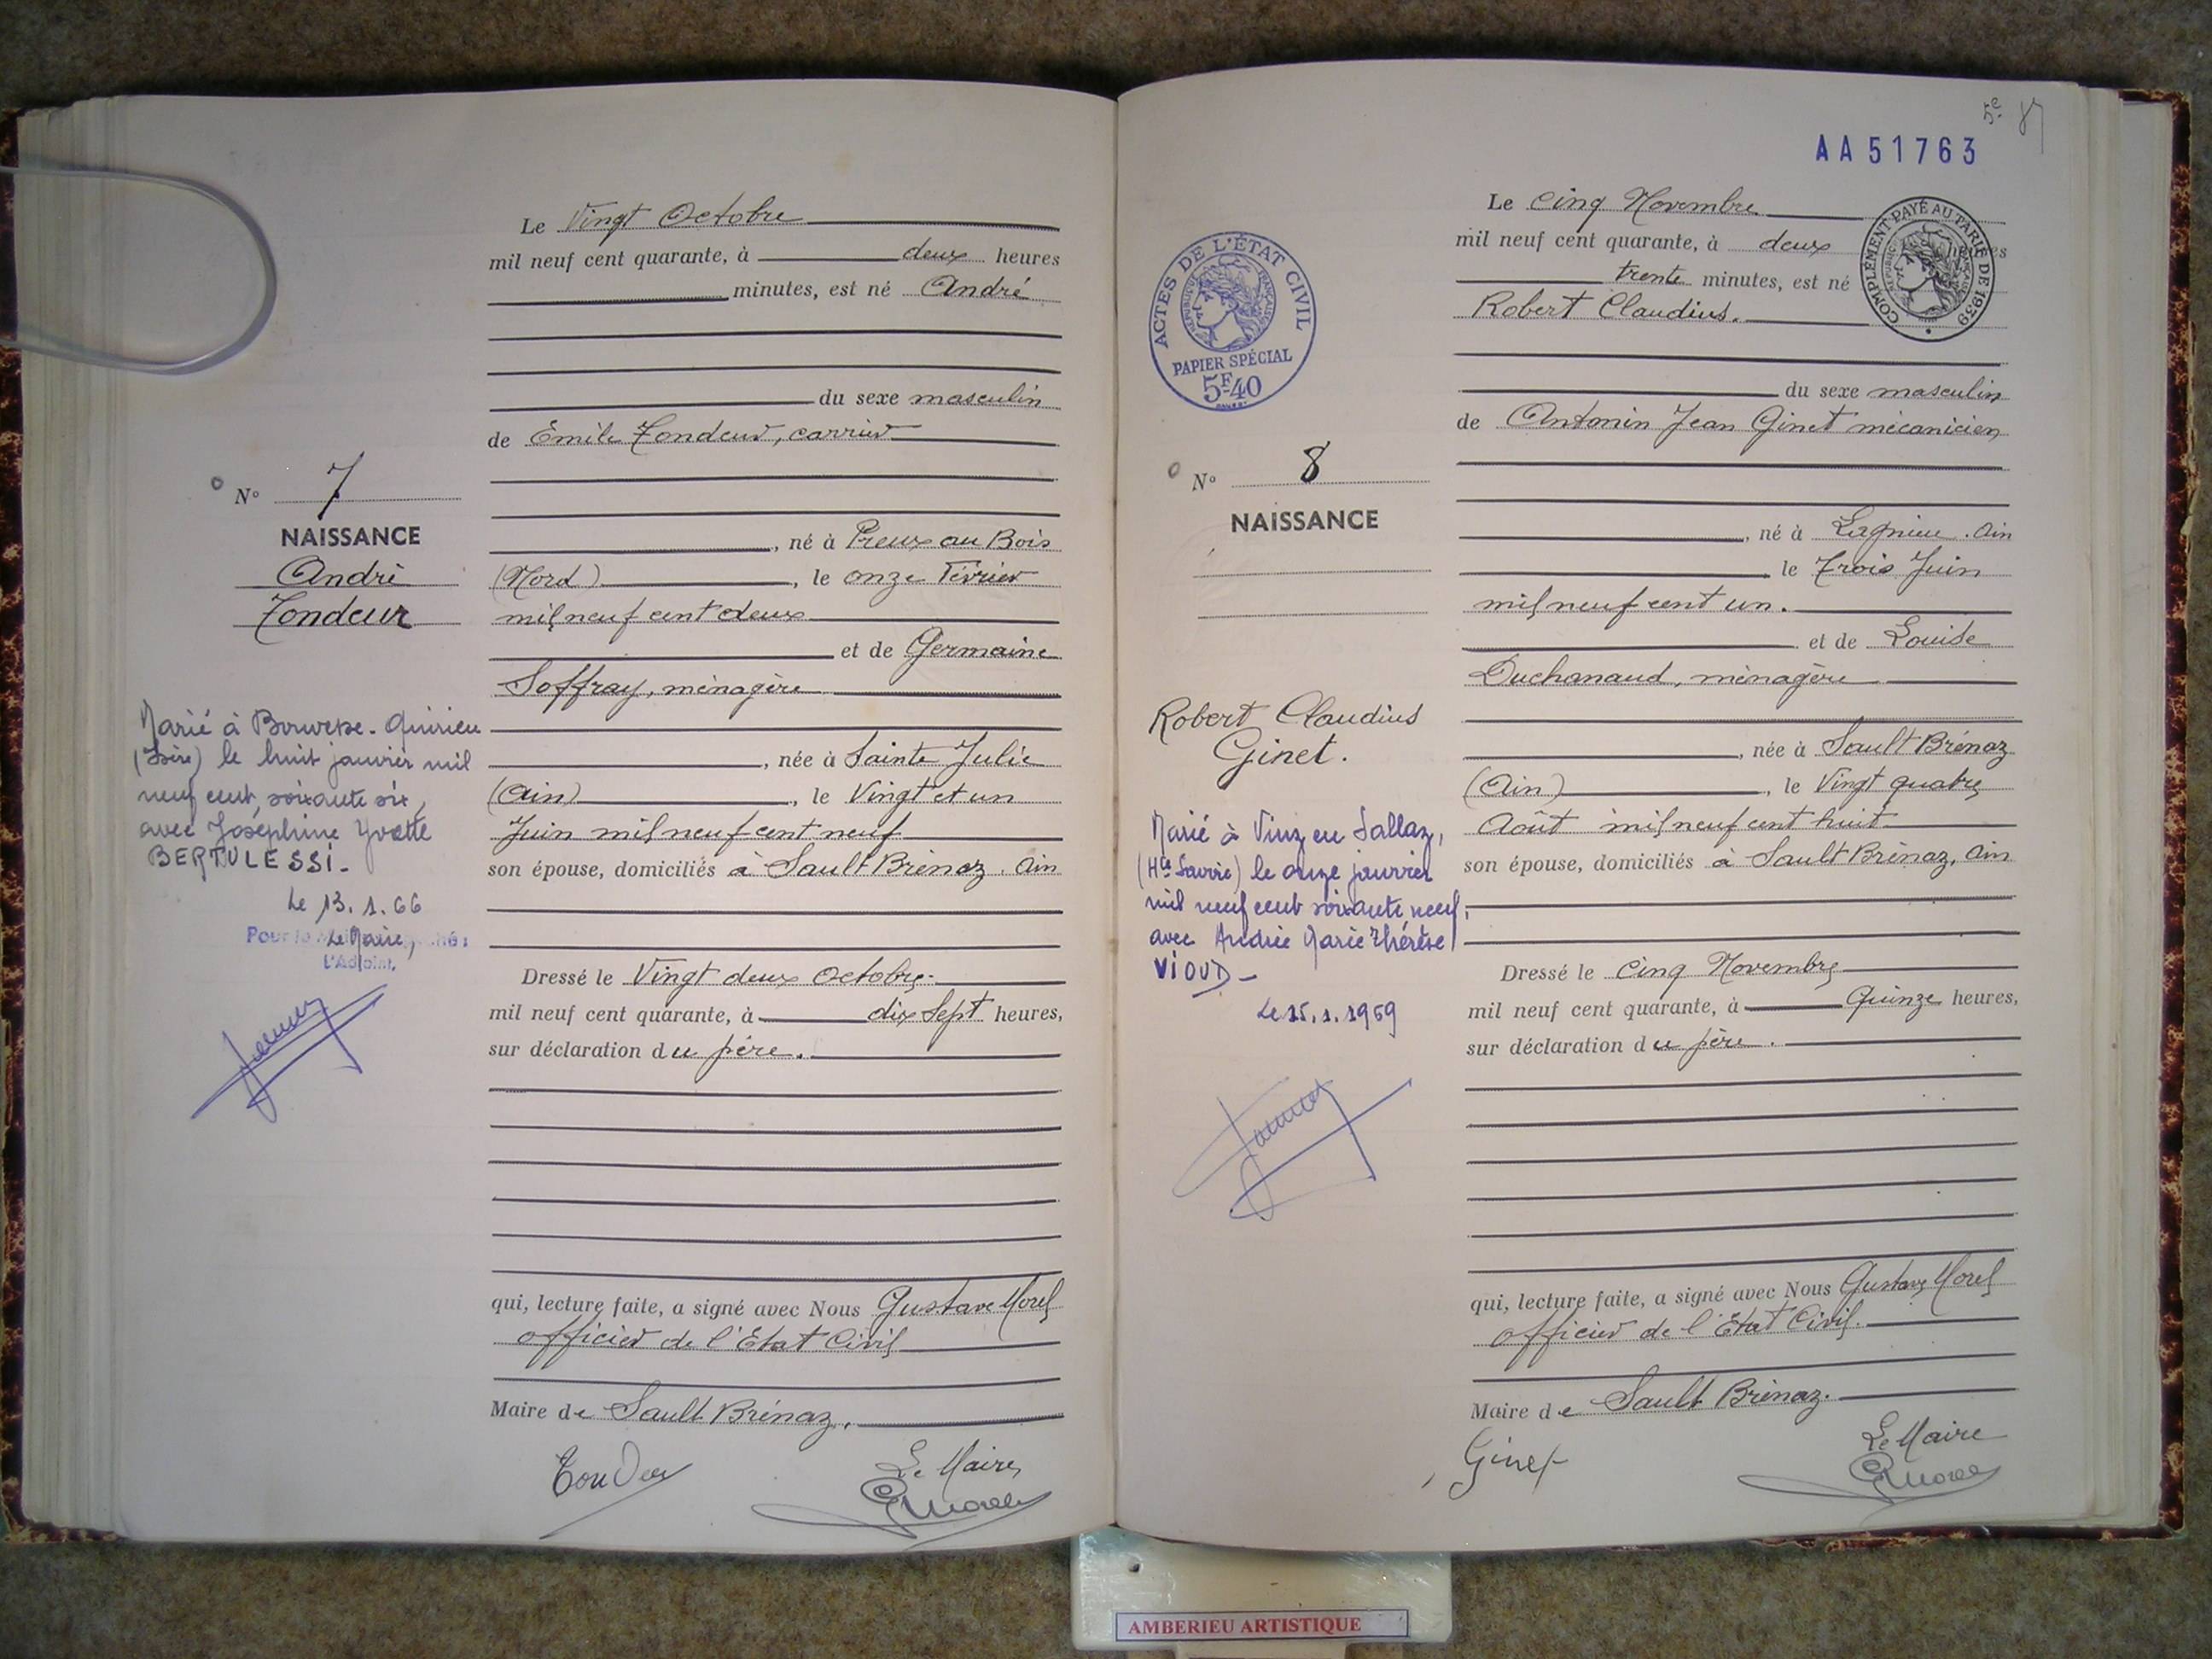 Le Vingt Octobre
mil neuf cent quarante, à deux heures
minutes, est né André
du sexe masculin
de Emile Tondeur, carrier
N° 7
NAISSANCE
André
Tondeur
, né à Preux au Bois
(Nord), le onze Février
mil neuf cent deux
et de Germaine
Soffray, ménagère
, née à Sainte Julie
(Ain), le Vingt et un
Juin mil neuf cent neuf
son épouse, domiciliés à Sault Brénaz. Ain
Marié à Bouvesse-Quirieu
(Isère) le huit janvier mil
neuf cent soixante six,
avec Joséphine Yvette
BERTULESSI-
Le 13.1.66
Le Maire,
L'Adjoint,
Dressé le Vingt deux Octobre
mil neuf cent quarante, à dix sept heures,
sur déclaration du père.
qui, lecture faite, a signé avec Nous Gustave Morel
officier de l'Etat Civil
Maire de Sault Brénaz.
Le Maire
GMorel
5e
AA51763
Le Cinq Novembre
mil neuf cent quarante, à deux heures
trente minutes, est né
Robert Claudius.
COMPLÉMENT PAYÉ AU TARIF DE 1939
ACTES DE L'ÉTAT CIVIL
RÉPUBLIQUE FRANÇAISE
PAPIER SPÉCIAL
5F40
du sexe masculin
de Antonin Jean Ginet mécanicien
N° 8
NAISSANCE
, né à Lagnieu. Ain
le Trois Juin
mil neuf cent un.
et de Louise
Duchanaud, ménagère
, née à Sault Brénaz
(Ain), le Vingt quatre
Août mil neuf cent huit
son épouse, domiciliés à Sault Brénaz, Ain
Robert Claudius
Ginet.
Marié à Viuz en Sallaz,
(Hte Savoie) le onze janvier
mil neuf cent soixante neuf,
avec Andrée Marie Thérèse
VIOUD-
Le 15.1.1969
Dressé le Cinq Novembre
mil neuf cent quarante, à Quinze heures,
sur déclaration du père.
qui, lecture faite, a signé avec Nous Gustave Morel
officier de l'Etat Civil.
Maire de Sault Brénaz.
Ginet
Le Maire
GMorel
AMBERIEU ARTISTIQUE